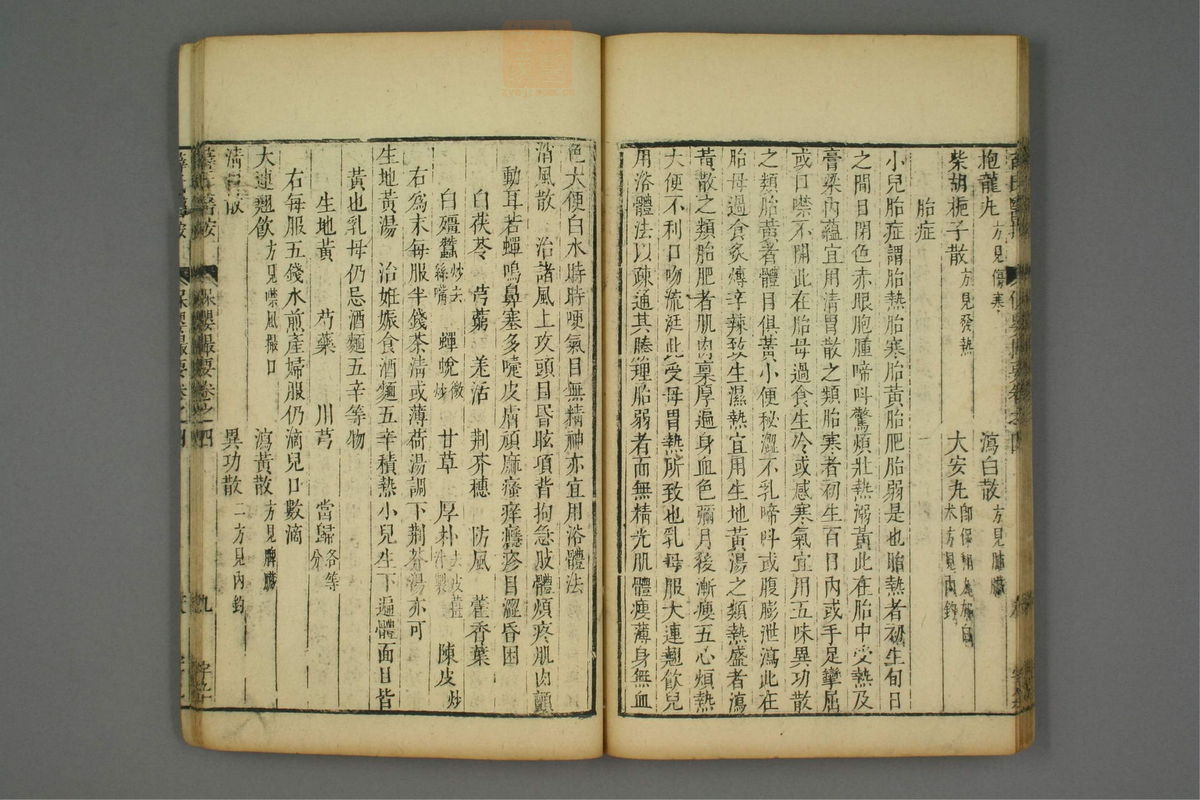 抱龍丸方見傷寒 瀉白散方見肺臟
柴胡梔子散方見發熱 大安丸
胎症
小兒胎症謂胎熱胎寒胎黃胎肥胎弱是也胎熱者初生旬日
之間目閉色赤眼胞腫啼呌驚煩壯熱溺黃此在胎中受熱及
膏粱內蘊宜用清胃散之類胎寒者初生百日內或手足攣屈
或口噤不開此在胎母過食生冷或感寒氣宜用五味異功散
之類胎黃者體目俱黃小便秘澀不乳啼呌或腹膨泄瀉此在
胎母過食炙煿辛辣致生濕熱宜用生地黃湯之類熱盛者瀉
黃散之類胎肥者肌肉稟厚遍身血色彌月後漸瘦五心煩熱
大便不利口吻流涎此受母胃熱所致也乳母服大連翹飲兒
用浴體法以疎通其腠理胎弱者面無精光肌體瘦薄身無血
色大便白水時時哽氣目無精神亦宜用浴體法
消風散 治諸風上攻頭目昏眩項背拘急肢體煩疼肌肉顫
動耳若蟬鳴鼻塞多嚏皮膚頑麻瘙痒癮疹目澀昏困
白茯苓 芎藭 羌活 荆芥穗 防風 藿香葉
白殭蠶炒去絲嘴 蟬蛻微炒 甘草 厚朴 陳皮炒
右為末每服半錢茶清或薄荷湯調下荆芥湯亦可
生地黃湯 治姙娠食酒麵五辛積熱小兒生下遍體面目皆
黃也乳母仍忌酒麵五辛等物
生地黃 芍藥 川芎 當歸各等分
右每服五錢水煎產婦服仍滴兒口數滴
大連翹飲方見噤風撮口 瀉黃散方見脾臟
清胃散 異功散二方見內釣
薛氏醫按 保嬰撮要卷之四 九